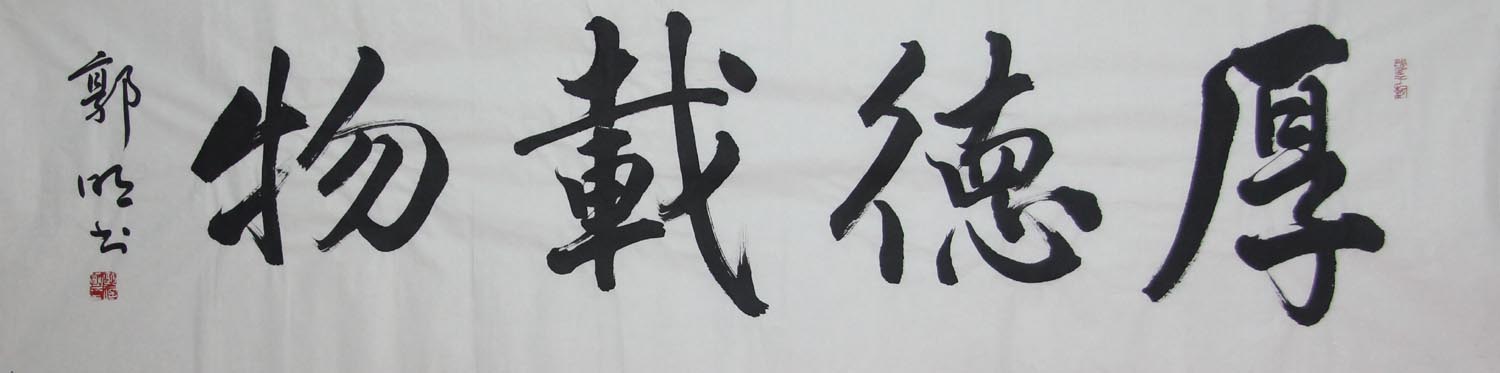 厚德載物
郭明书